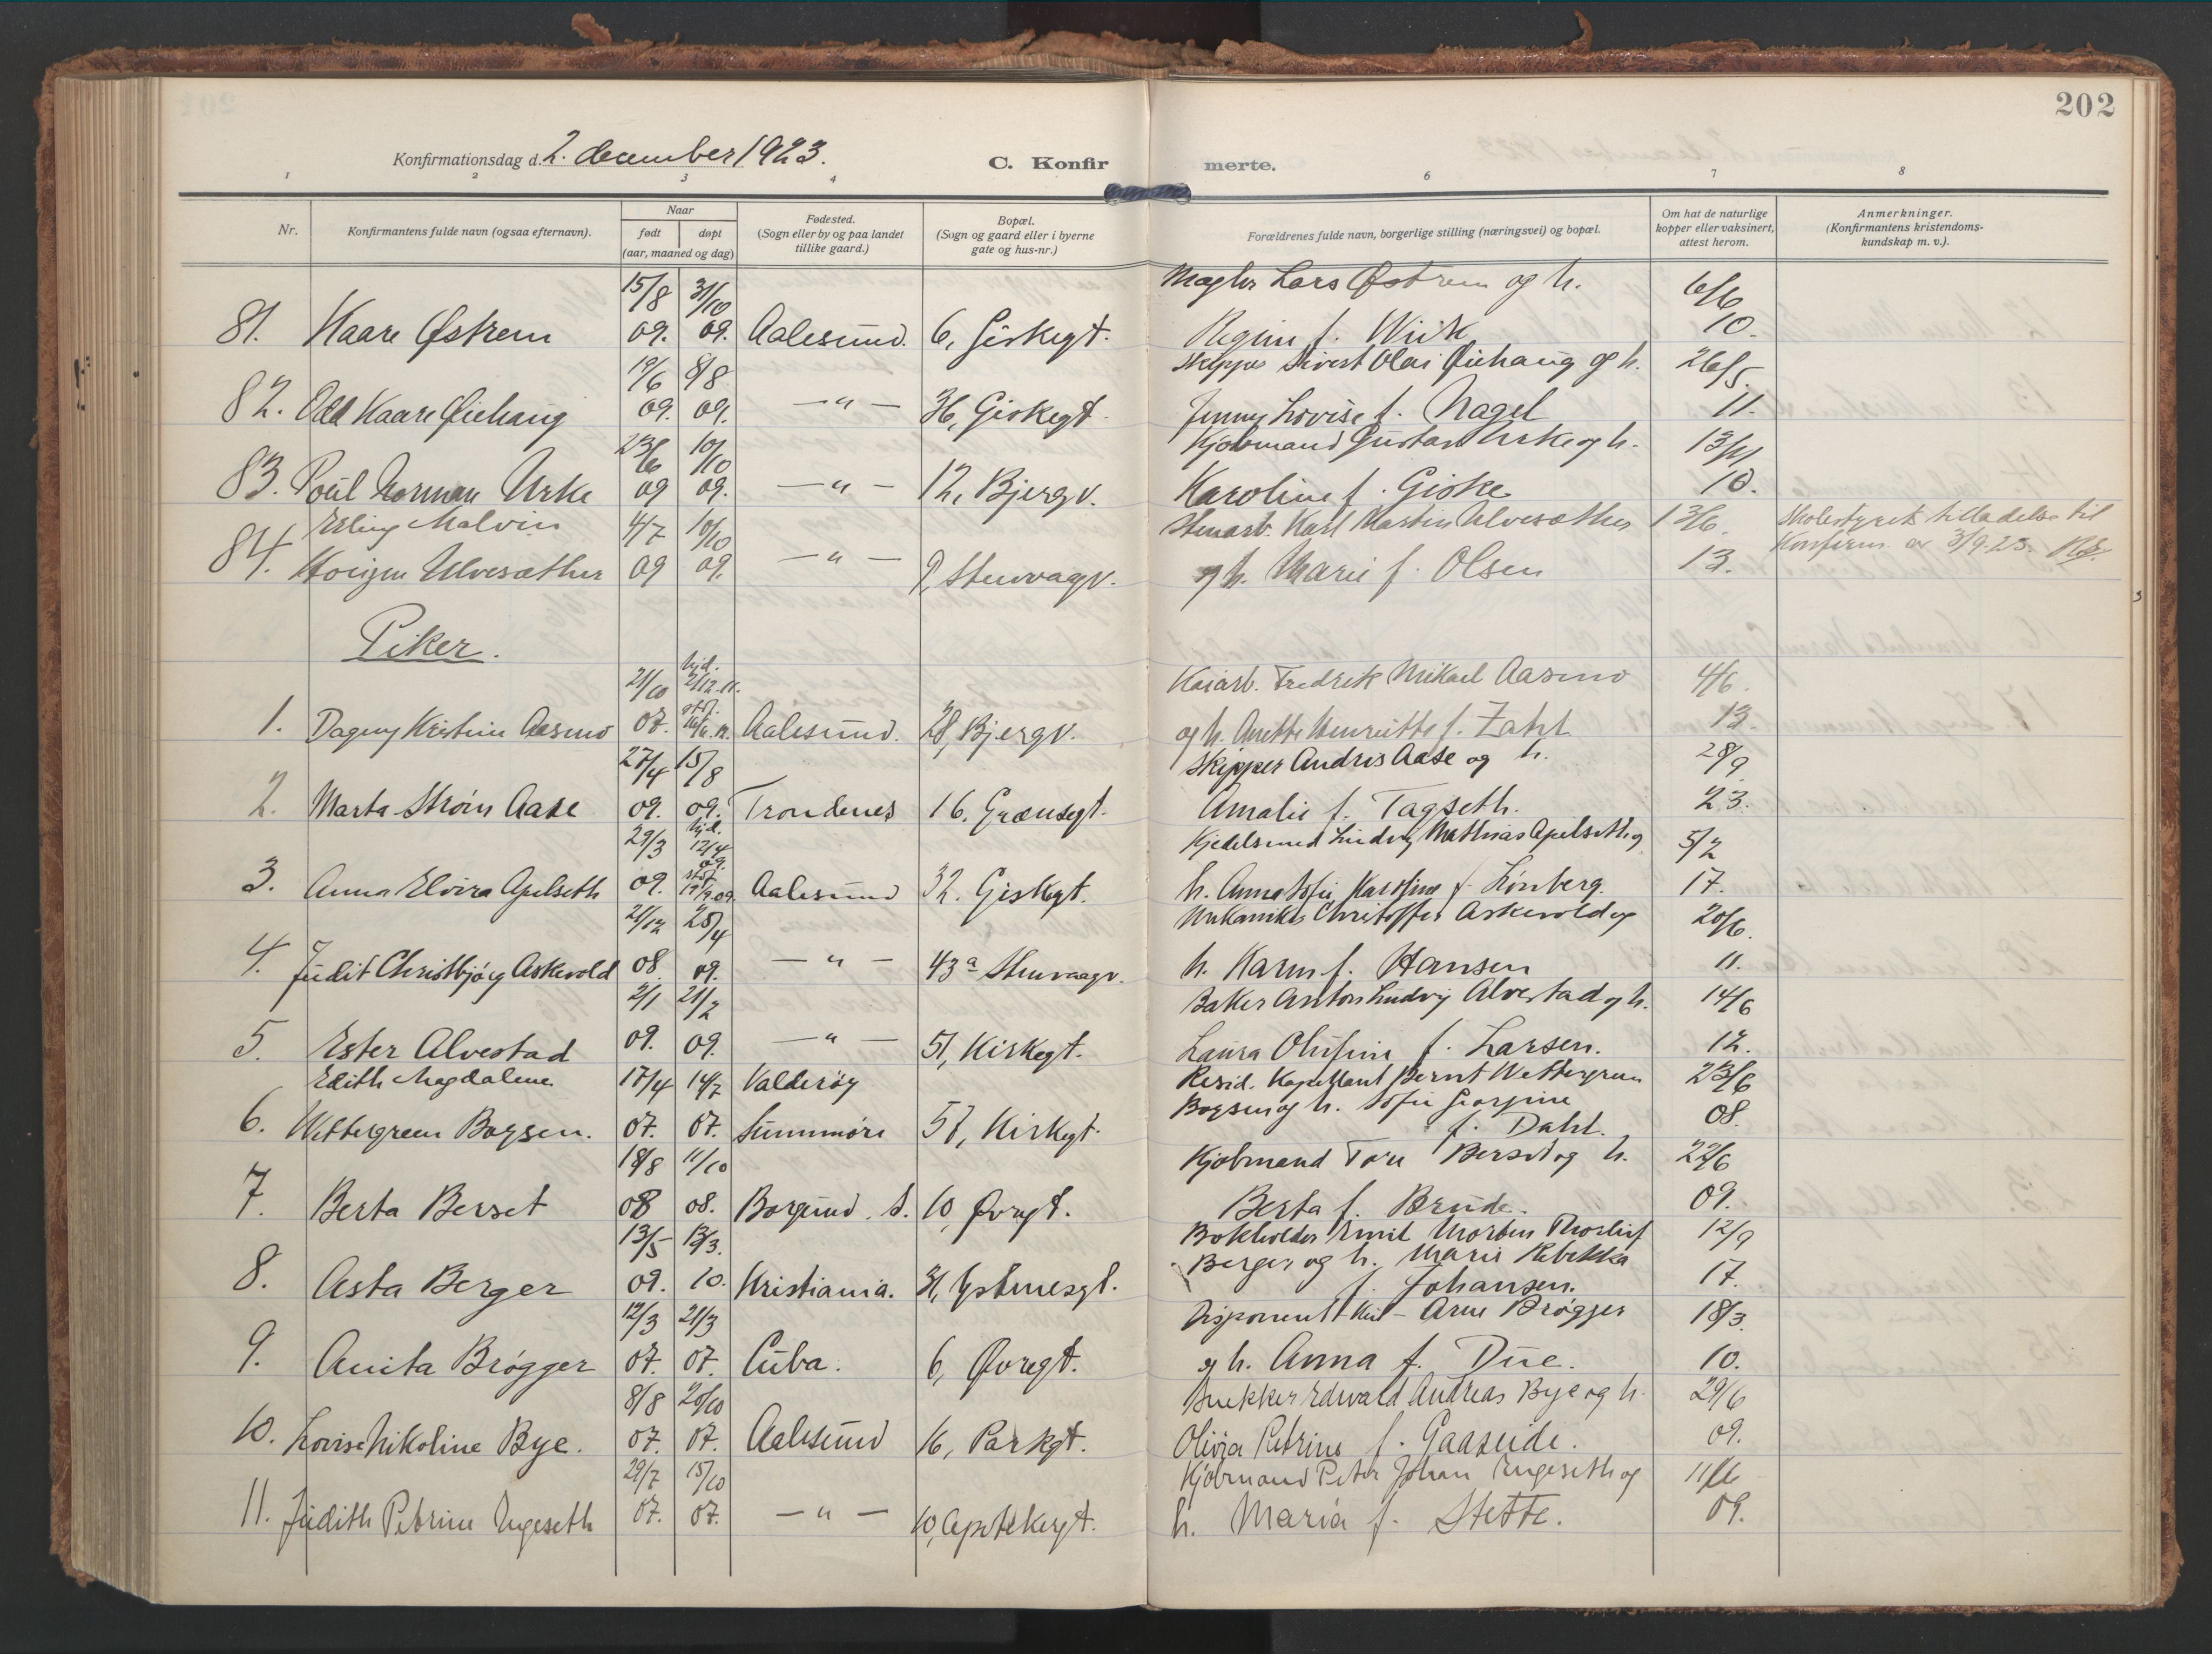 202
Konfirmationsdag d. 2. december 1923.
C. Konfir
merte.
1 2 3 4 6 7 8
Nr.
Konfirmantens fulde navn (ogsaa efternavn).
Naar
født døpt
(aar, maaned og dag)
Fødested.
(Sogn eller by og paa landet
tillike gaard.)
Bopæl.
(Sogn og gaard eller i byerne
gate og hus-nr.)
Forældrenes fulde navn, borgerlige stilling (næringsvei) og bopæl.
Om hat de naturlige
kopper eller vaksinert,
attest herom.
Anmerkninger.
(Konfirmantens kristendoms-
kundskap m. v.).
15/8 31/10 Mægler Lars Østrem og h. 6/6
81. Kaare Østrem 09. 09. Aalesund. 6, Giskegt. Regine f. Wiik 10.
19/6 8/8 Skipper Sivert Olai Øiehaug og h. 26/5.
82. Odd Kaare Øiehaug 09. 09. — " — 36, Giskegt. Jenny Lovise f. Nagel 11.
23/6 10/10 Kjøbmand Gustav Urke og h. 13/11
83. Poul Norman Urke 09 09. — " — 12, Bjergv. Karoline f. Giske 10.
Erling Malvin 4/7 10/10 Stuearb. Karl Martin Ulvesæther 13/6. Skolestyrets tilladelse til
84. Ulvesæther 09 09. — " — 9, Stenvaagv. og h. Marie f. Olsen 13. Konfirm. av 3/9.23.
Piker.
21/10 hjd. 21/12.11. Kaiarb. Fredrik Mikael Aasmo 4/6.
1. Dagny Kristine Aasmo 07. stf. Aalesund. 28, Bjergv. og h. Anette Henriette f. Zahl 13.
27/4 15/8 Skipper Andres Aase og h. 28/9
2. Marta Strøm Aase 09. 09. Trondenes 16. Grænsegt. Amalie f. Tagseth. 23.
29/3 hjd. 12/4 09. Kjedelsmed Ludvig Mathias Apelseth og 5/2
3. Anna Elvira Apelseth 09. stf. 19/9 09. Aalesund 32. Giskegt. h. Anna Sofie Karoline f. Lønberg. 17.
21/12 25/4 Mekaniker Christoffer Askevold og 20/6.
4. Judit Christbjørg Askevold 08 09. — " — 43a Stenvaagv. h. Karen f. Hansen 11.
2/1 21/2 Baker Anton Ludvig Alvestad og h. 14/6
5. Ester Alvestad 09. 09. — " — 51, Kirkegt. Laura Olufine f. Larsen. 12.
Edith Magdalene 17/4 14/7 Valderøy Resid. Kapellant Bernt Wettergreen 23/6
6. Wettergreen Boysen. 07. 07. Sunnmøre 57, Kirkegt. Boysen og h. Sofie Georgine 08.
f. Dahl.
18/8 11/10 Kjøbmand Tore Berset og h. 22/6
7. Berta Berset 08 08. Borgund. S. 10, Øvregt. Berta f. Brude. 09.
13/5 13/3. Bokholder Emil Morten Thorleif 12/9
8. Asta Berger 09. 10. Kristiania. 31, Ystenesgt. Berger og h. Marie Rebekka 17.
f. Johansen.
12/3 21/3 Disponent Arne Brøgger 18/3.
9. Anita Brøgger 07. 07. Cuba. 6, Øvregt. og h. Anna f. Due. 10.
8/8 20/10 Snekker Edevald Andreas Bye og h. 29/6
10. Lovise Nikoline Bye. 07. 07. Aalesund 16, Parkgt. Olivia Petrine f. Gaaseide. 09.
29/7 15/10 Kjøbmand Peter Johan Engeseth og 11/6
11. Judith Petrine Engeseth 07. 07. — " — 10, Apotekergt. h. Maria f. Stette. 09.